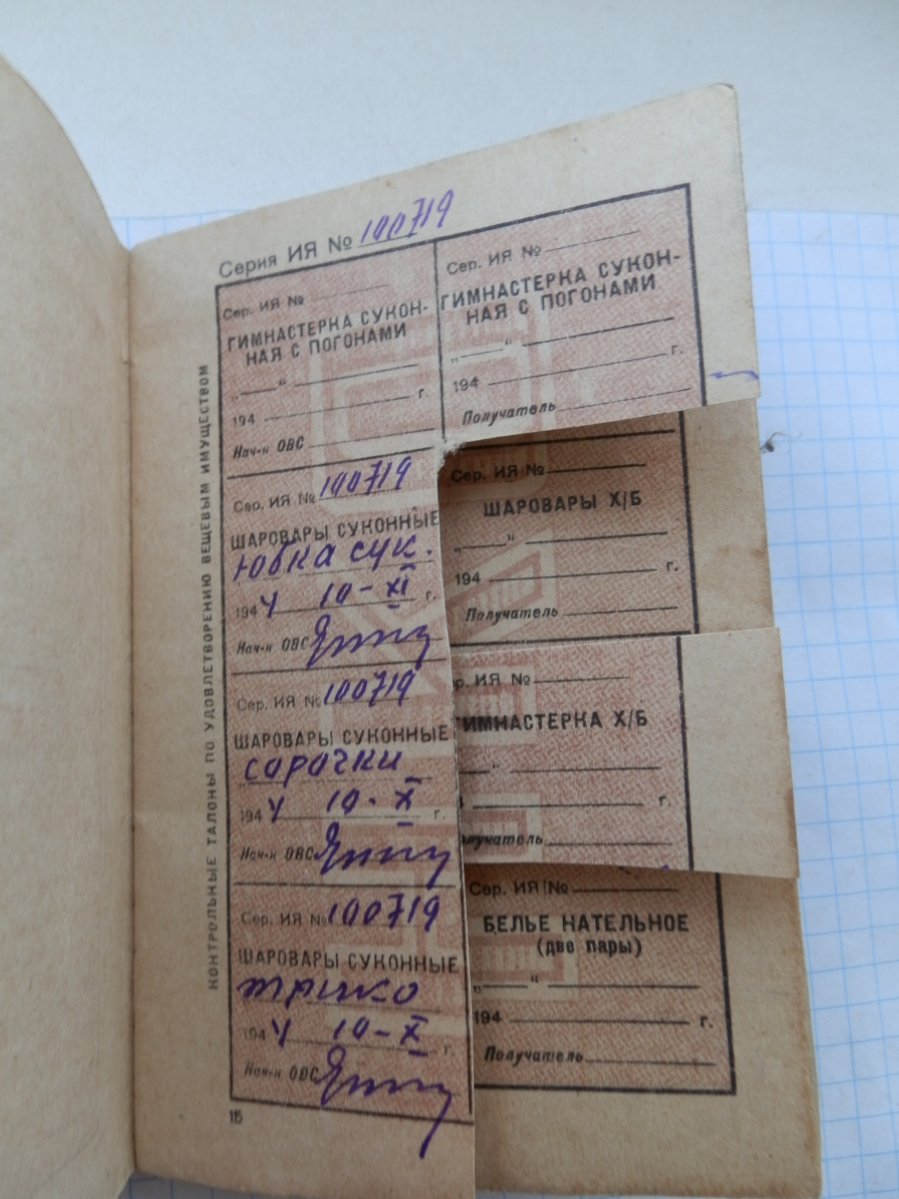 Серия ИЯ № 100719
КОНТРОЛЬНЫЕ ТАЛОНЫ ПО УДОВЛЕТВОРЕНИЮ ВЕЩЕВЫМ ИМУЩЕСТВОМ
Сер. ИЯ №
ГИМНАСТЕРКА СУКОН-
НАЯ С ПОГОНАМИ
„ “
194 г.
Нач-к ОВС
Сер. ИЯ № 100719
ШАРОВАРЫ СУКОННЫЕ
Юбка сук.
1944 10-XI г.
Нач-к ОВС
Сер. ИЯ № 100719
ШАРОВАРЫ СУКОННЫЕ
сорочки
1944 10-X г.
Нач-к ОВС
Сер. ИЯ № 100719
ШАРОВАРЫ СУКОННЫЕ
трико
1944 10-X г.
Нач-к ОВС
15
Сер. ИЯ №
ГИМНАСТЕРКА СУКОН-
НАЯ С ПОГОНАМИ
„ “
194 г.
Получатель
Сер. ИЯ №
ШАРОВАРЫ Х/Б
„ “
194 г.
Получатель
р. ИЯ №
ИМНАСТЕРКА Х/Б
“
г.
олучатель
Сер. ИЯ №
БЕЛЬЕ НАТЕЛЬНОЕ
(две пары)
„ “
194 г.
Получатель